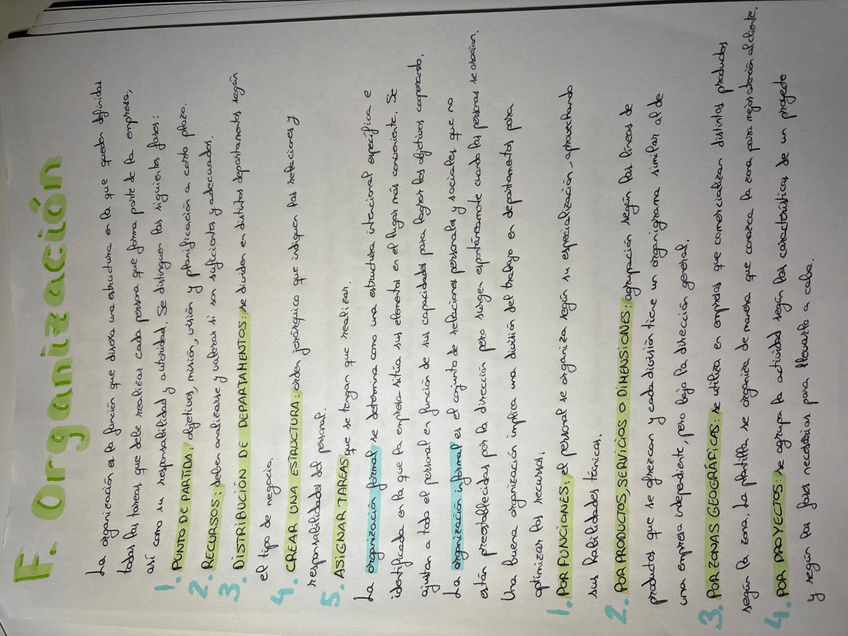 F. Organización
La organización es la función que diseña una estructura en la que quedan definidas
todas las tareas que debe realizar cada persona que forma parte de la empresa,
así como su responsabilidad y autoridad. Se distinguen las siguientes fases:
1. PUNTO DE PARTIDA: objetivos, misión, visión y planificación a corto plazo.
2. RECURSOS: deben analizarse y valorar si son suficientes y adecuados.
3. DISTRIBUCIÓN DE DEPARTAMENTOS: se dividen en distintos departamentos según
el tipo de negocio.
4. CREAR UNA ESTRUCTURA: orden jerárquico que indiquen las relaciones y
responsabilidades del personal.
5. ASIGNAR TAREAS que se tengan que realizar.
La organización formal se determina como una estructura intencional específica e
identificada en la que la empresa sitúa sus elementos en el lugar más conveniente. Se
ajustan a todo el personal en función de sus capacidades para lograr los objetivos cooperando.
La organización informal es el conjunto de relaciones personales y sociales que no
están preestablecidas por la dirección pero surgen espontáneamente cuando las personas se asocian.
Una buena organización implica una división del trabajo en departamentos para
optimizar los recursos:
1. POR FUNCIONES: el personal se organiza según su especialización, aprovechando
sus habilidades técnicas.
2. POR PRODUCTOS, SERVICIOS O DIMENSIONES: agrupación según las líneas de
productos que se ofrezcan y cada división tiene un organigrama similar al de
una empresa independiente, pero bajo la dirección general.
3. POR ZONAS GEOGRÁFICAS: se utiliza en empresas que comercializan distintos productos
según la zona. La plantilla se organiza de manera que conozca la zona para mejor atención al cliente.
4. POR PROYECTOS: se agrupa la actividad según las características de un proyecto
y según las fases necesarias para llevarlo a cabo.